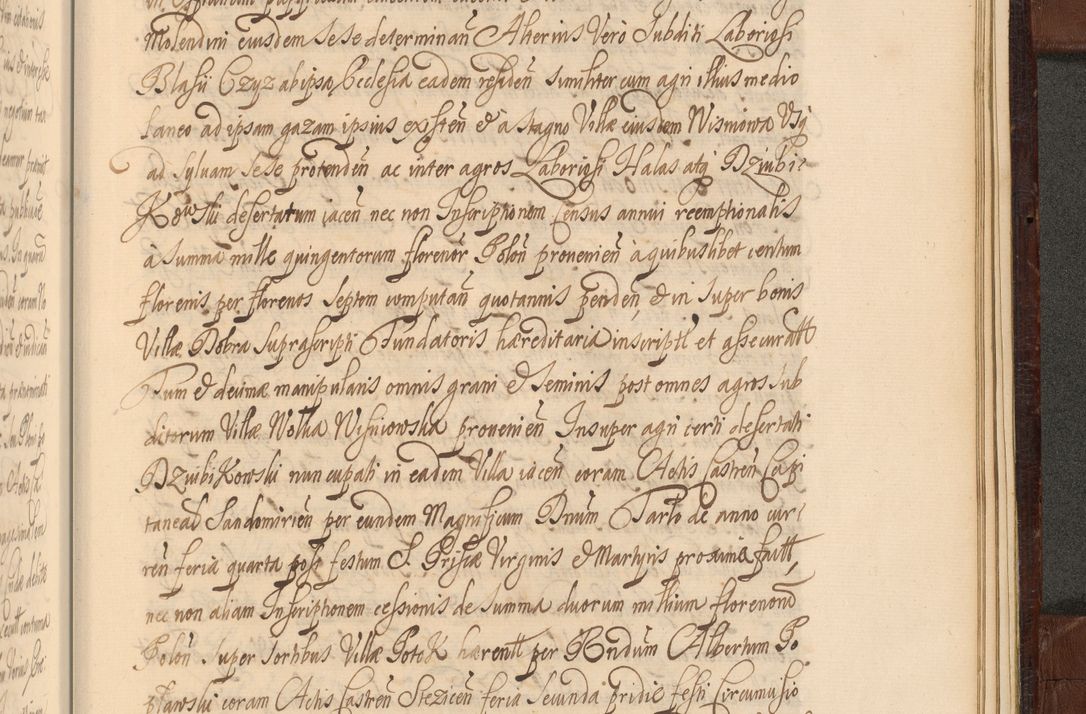 Molendini eiusdem sese determinan̄ Alterius Vero Subditi Laboriosi
Blasii Czyz ab ipsa Ecclesia eadem residen̄ similiter cum agri illius medio
Laneo ad ipsam gazam ipsius existen̄ & a stagno Villæ eiusdem Wisniowa Usq
ad sylvam sese protenden̄ ac inter agros Laboriosi Halas atq Dziubi-
Kowski desertatum iacen̄ nec non Inscriptionem Census annui reemptionalis
à Summa mille quingentorum florenor Polon̄ provenien̄ à quibuslibet centum
florenis per florenos septem computan̄ quotannis penden̄, & in super bonis
Villæ Dobra suprascripti Fundatoris hæreditaria inscriptt et assecuratt
Tum & decimæ manipularis omnis grani & seminis post omnes agros sub
ditorum Villæ Wolka Wisniowska provenien̄ Insuper agri certi desertati
DziubiKowski nuncupati in eadem Villa iacen̄ coram Actis Castren̄ Capi
taneal Sandomirien̄ per eundem Magnificum Dnum Tarlo de anno cur-
ren̄ feria quarta post festum S. Priscæ Virginis & Martyris proxima fact,
nec non aliam Inscriptionem cessionis de summa duorum millium florenorū
Polon̄ super sortibus Villæ PotoK hærentt per Gndum Albertum Po
stawski coram Actis Castren̄ Stezicen̄ feria secunda pridie festi Circumcisio